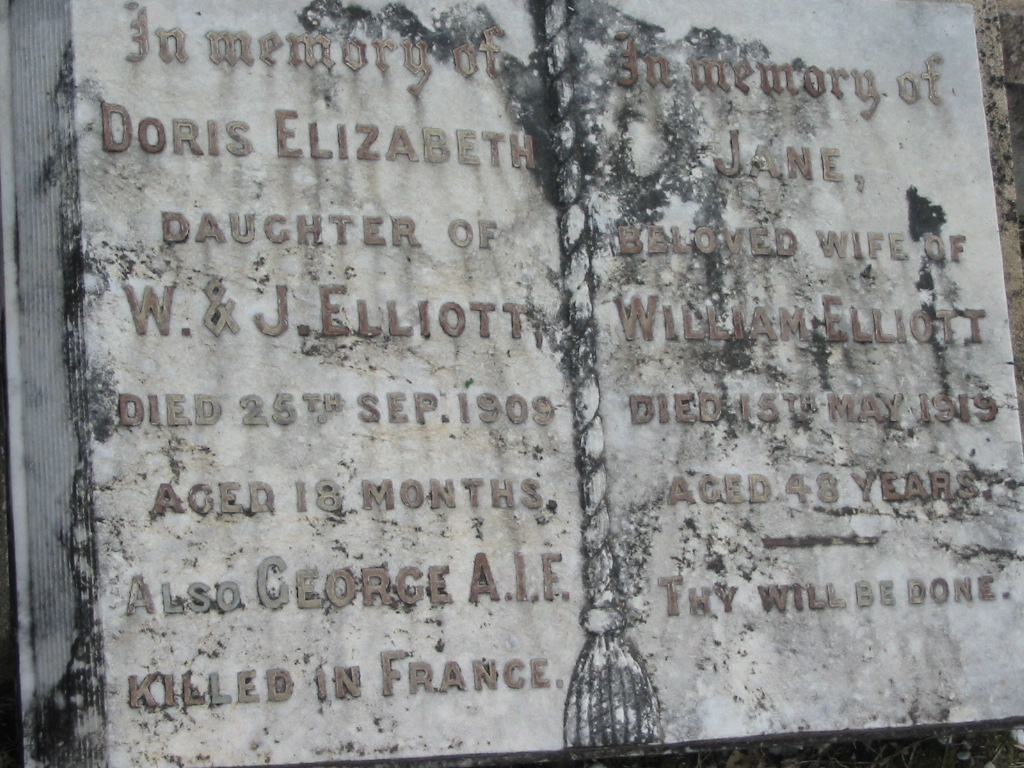 In memory of
DORIS ELIZABETH
DAUGHTER OF
W. & J. ELLIOTT,
DIED 25TH SEP. 1909
AGED 18 MONTHS.
ALSO GEORGE A.I.F.
KILLED IN FRANCE.
In memory of
JANE,
BELOVED WIFE OF
WILLIAM ELLIOTT
DIED 15TH MAY 1919
AGED 48 YEARS.
THY WILL BE DONE.